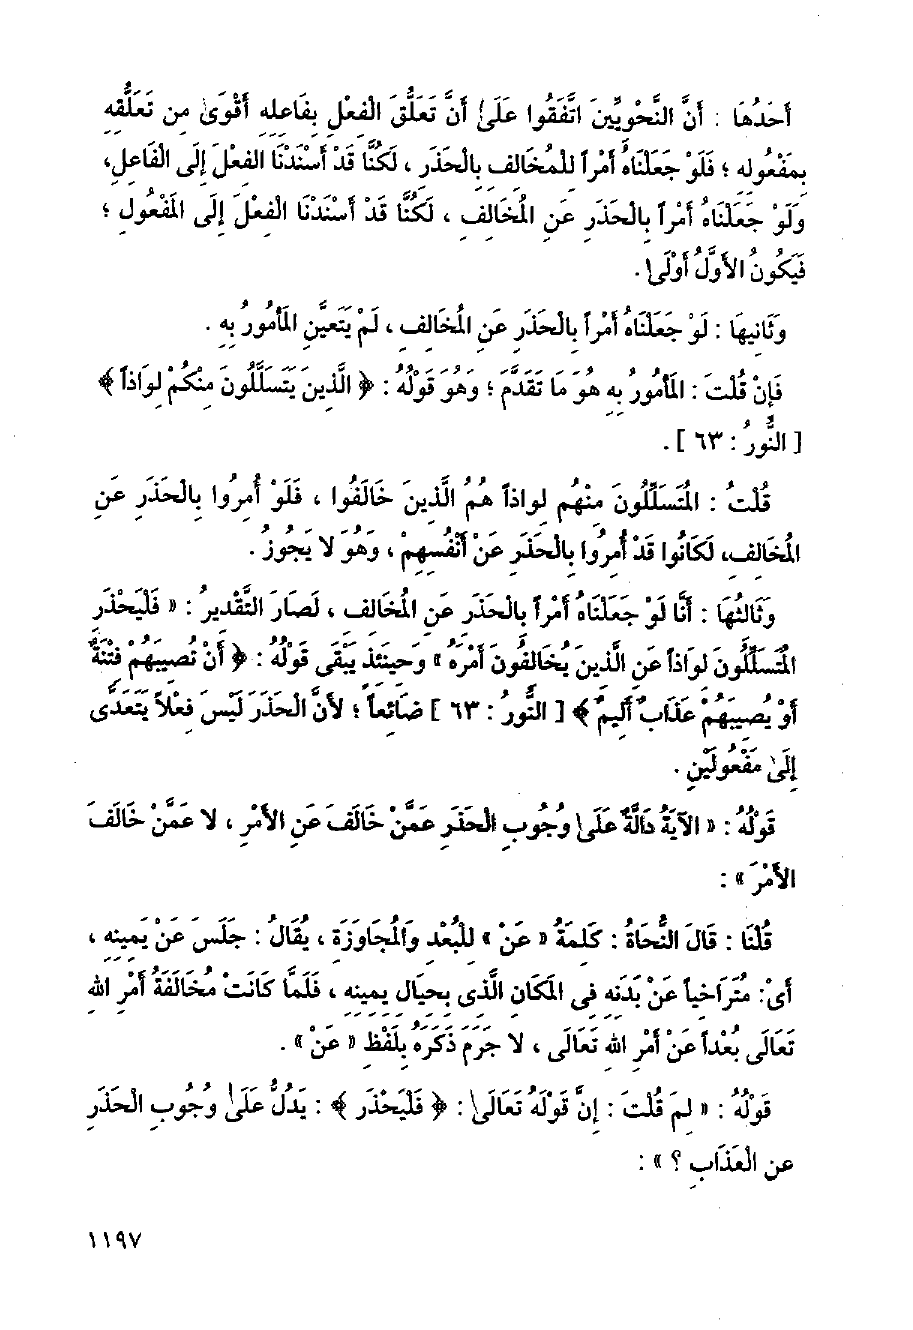 أَحَدُهَا : أَنَّ النَّحْوِيِّينَ اتَّفَقُوا عَلَىٰ أَنَّ تَعَلُّقَ الْفِعْلِ بِفَاعِلِهِ أَقْوَىٰ مِن تَعَلُّقِهِ
بِمَفْعُولِهِ ؛ فَلَوْ جَعَلْنَاهُ أَمْراً لِلْمُخَالِفِ بِالْحَذَرِ ، لَكُنَّا قَدْ أَسْنَدْنَا الفِعْلَ إِلَى الْفَاعِلِ،
وَلَوْ جَعَلْنَاهُ أَمْراً بِالْحَذَرِ عَنِ الْمُخَالِفِ ، لَكُنَّا قَدْ أَسْنَدْنَا الْفِعْلَ إِلَى الْمَفْعُولِ ؛
فَيَكُونُ الأَوَّلُ أَوْلَىٰ .
وَثَانِيهَا : لَوْ جَعَلْنَاهُ أَمْراً بِالْحَذَرِ عَنِ الْمُخَالِفِ ، لَمْ يَتَعَيَّنِ الْمَأْمُورُ بِهِ .
فَإِنْ قُلْتَ : الْمَأْمُورُ بِهِ هُوَ مَا تَقَدَّمَ ؛ وَهُوَ قَوْلُهُ : ﴿ الَّذِينَ يَتَسَلَّلُونَ مِنْكُمْ لِوَاذاً ﴾
[ النُّورُ : ٦٣ ] .
قُلْتُ : الْمُتَسَلِّلُونَ مِنْهُم لِوَاذاً هُمُ الَّذِينَ خَالَفُوا ، فَلَوْ أُمِرُوا بِالْحَذَرِ عَنِ
الْمُخَالِفِ، لَكَانُوا قَدْ أُمِرُوا بِالْحَذَرِ عَنْ أَنْفُسِهِمْ ، وَهُوَ لَا يَجُوزُ .
وَثَالِثُهَا : أَنَّا لَوْ جَعَلْنَاهُ أَمْراً بِالْحَذَرِ عَنِ الْمُخَالِفِ ، لَصَارَ التَّقْدِيرُ : « فَلْيَحْذَرِ
الْمُتَسَلِّلُونَ لِوَاذاً عَنِ الَّذِينَ يُخَالِفُونَ أَمْرَهُ » وَحِينَئِذٍ يَبْقَى قَوْلُهُ : ﴿ أَنْ تُصِيبَهُمْ فِتْنَةٌ
أَوْ يُصِيبَهُمْ عَذَابٌ أَلِيمٌ ﴾ [ النُّورُ : ٦٣ ] ضَائِعاً ؛ لأَنَّ الْحَذَرَ لَيْسَ فِعْلاً يَتَعَدَّى
إِلَىٰ مَفْعُولَيْنِ .
قَوْلُهُ : « الآيَةُ دَالَّةٌ عَلَىٰ وُجُوبِ الْحَذَرِ عَمَّنْ خَالَفَ عَنِ الأَمْرِ ، لا عَمَّنْ خَالَفَ
الأَمْرَ » :
قُلْنَا : قَالَ النُّحَاةُ : كَلِمَةُ « عَنْ » لِلْبُعْدِ وَالْمُجَاوَزَةِ ، يُقَالُ : جَلَسَ عَنْ يَمِينِهِ ،
أَىْ: مُتَرَاخِياً عَنْ بَدَنِهِ فِى الْمَكَانِ الَّذِى بِحِيَالِ يَمِينِهِ ، فَلَمَّا كَانَتْ مُخَالَفَةُ أَمْرِ اللهِ
تَعَالَى بُعْداً عَنْ أَمْرِ اللهِ تَعَالَى ، لا جَرَمَ ذَكَرَهُ بِلَفْظِ « عَنْ » .
قَوْلُهُ : « لِمَ قُلْتَ : إِنَّ قَوْلَهُ تَعَالَىٰ : ﴿ فَلْيَحْذَرِ ﴾ : يَدُلُّ عَلَىٰ وُجُوبِ الْحَذَرِ
عنِ الْعَذَابِ ؟ » :
١١٩٧